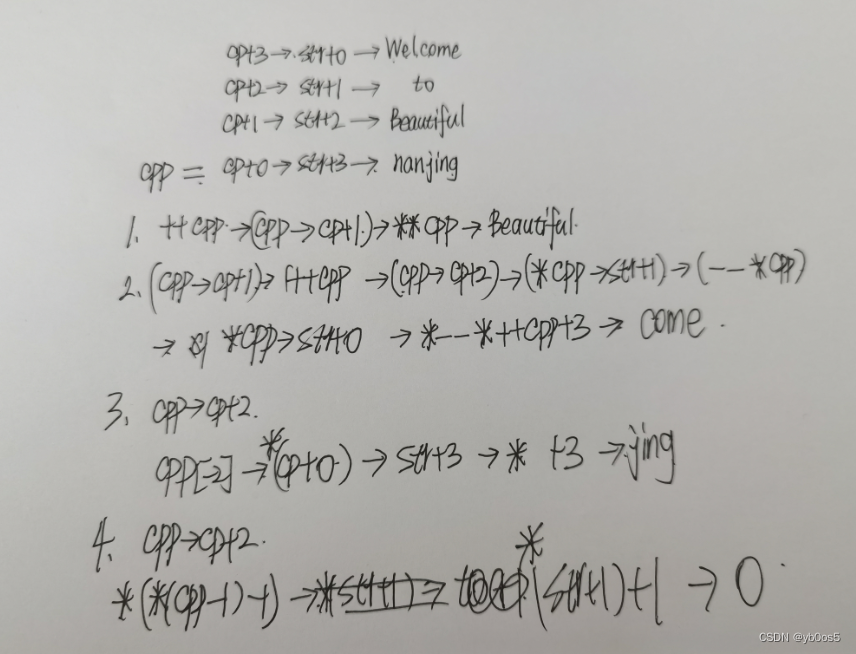 cp+3→str+0→Welcome
cp+2→str+1→to
cp+1→str+2→Beautiful
cpp = cp+0→str+3→nanjing
1. ++cpp→(cpp→cp+1)→**cpp→Beautiful.
2. (cpp→cp+1)→ ++cpp →(cpp→cp+2)→(*cpp→str+1)→(--*cpp)
→ *cpp→str+0 →*--*++cpp+3→ come.
3. cpp→cp+2.
cpp[-2]→*(cp+0)→str+3→* +3→jing
4. cpp→cp+2.
*(*(cpp-1)-1)→ *(str+1)+1 →O
CSDN @yb0os5